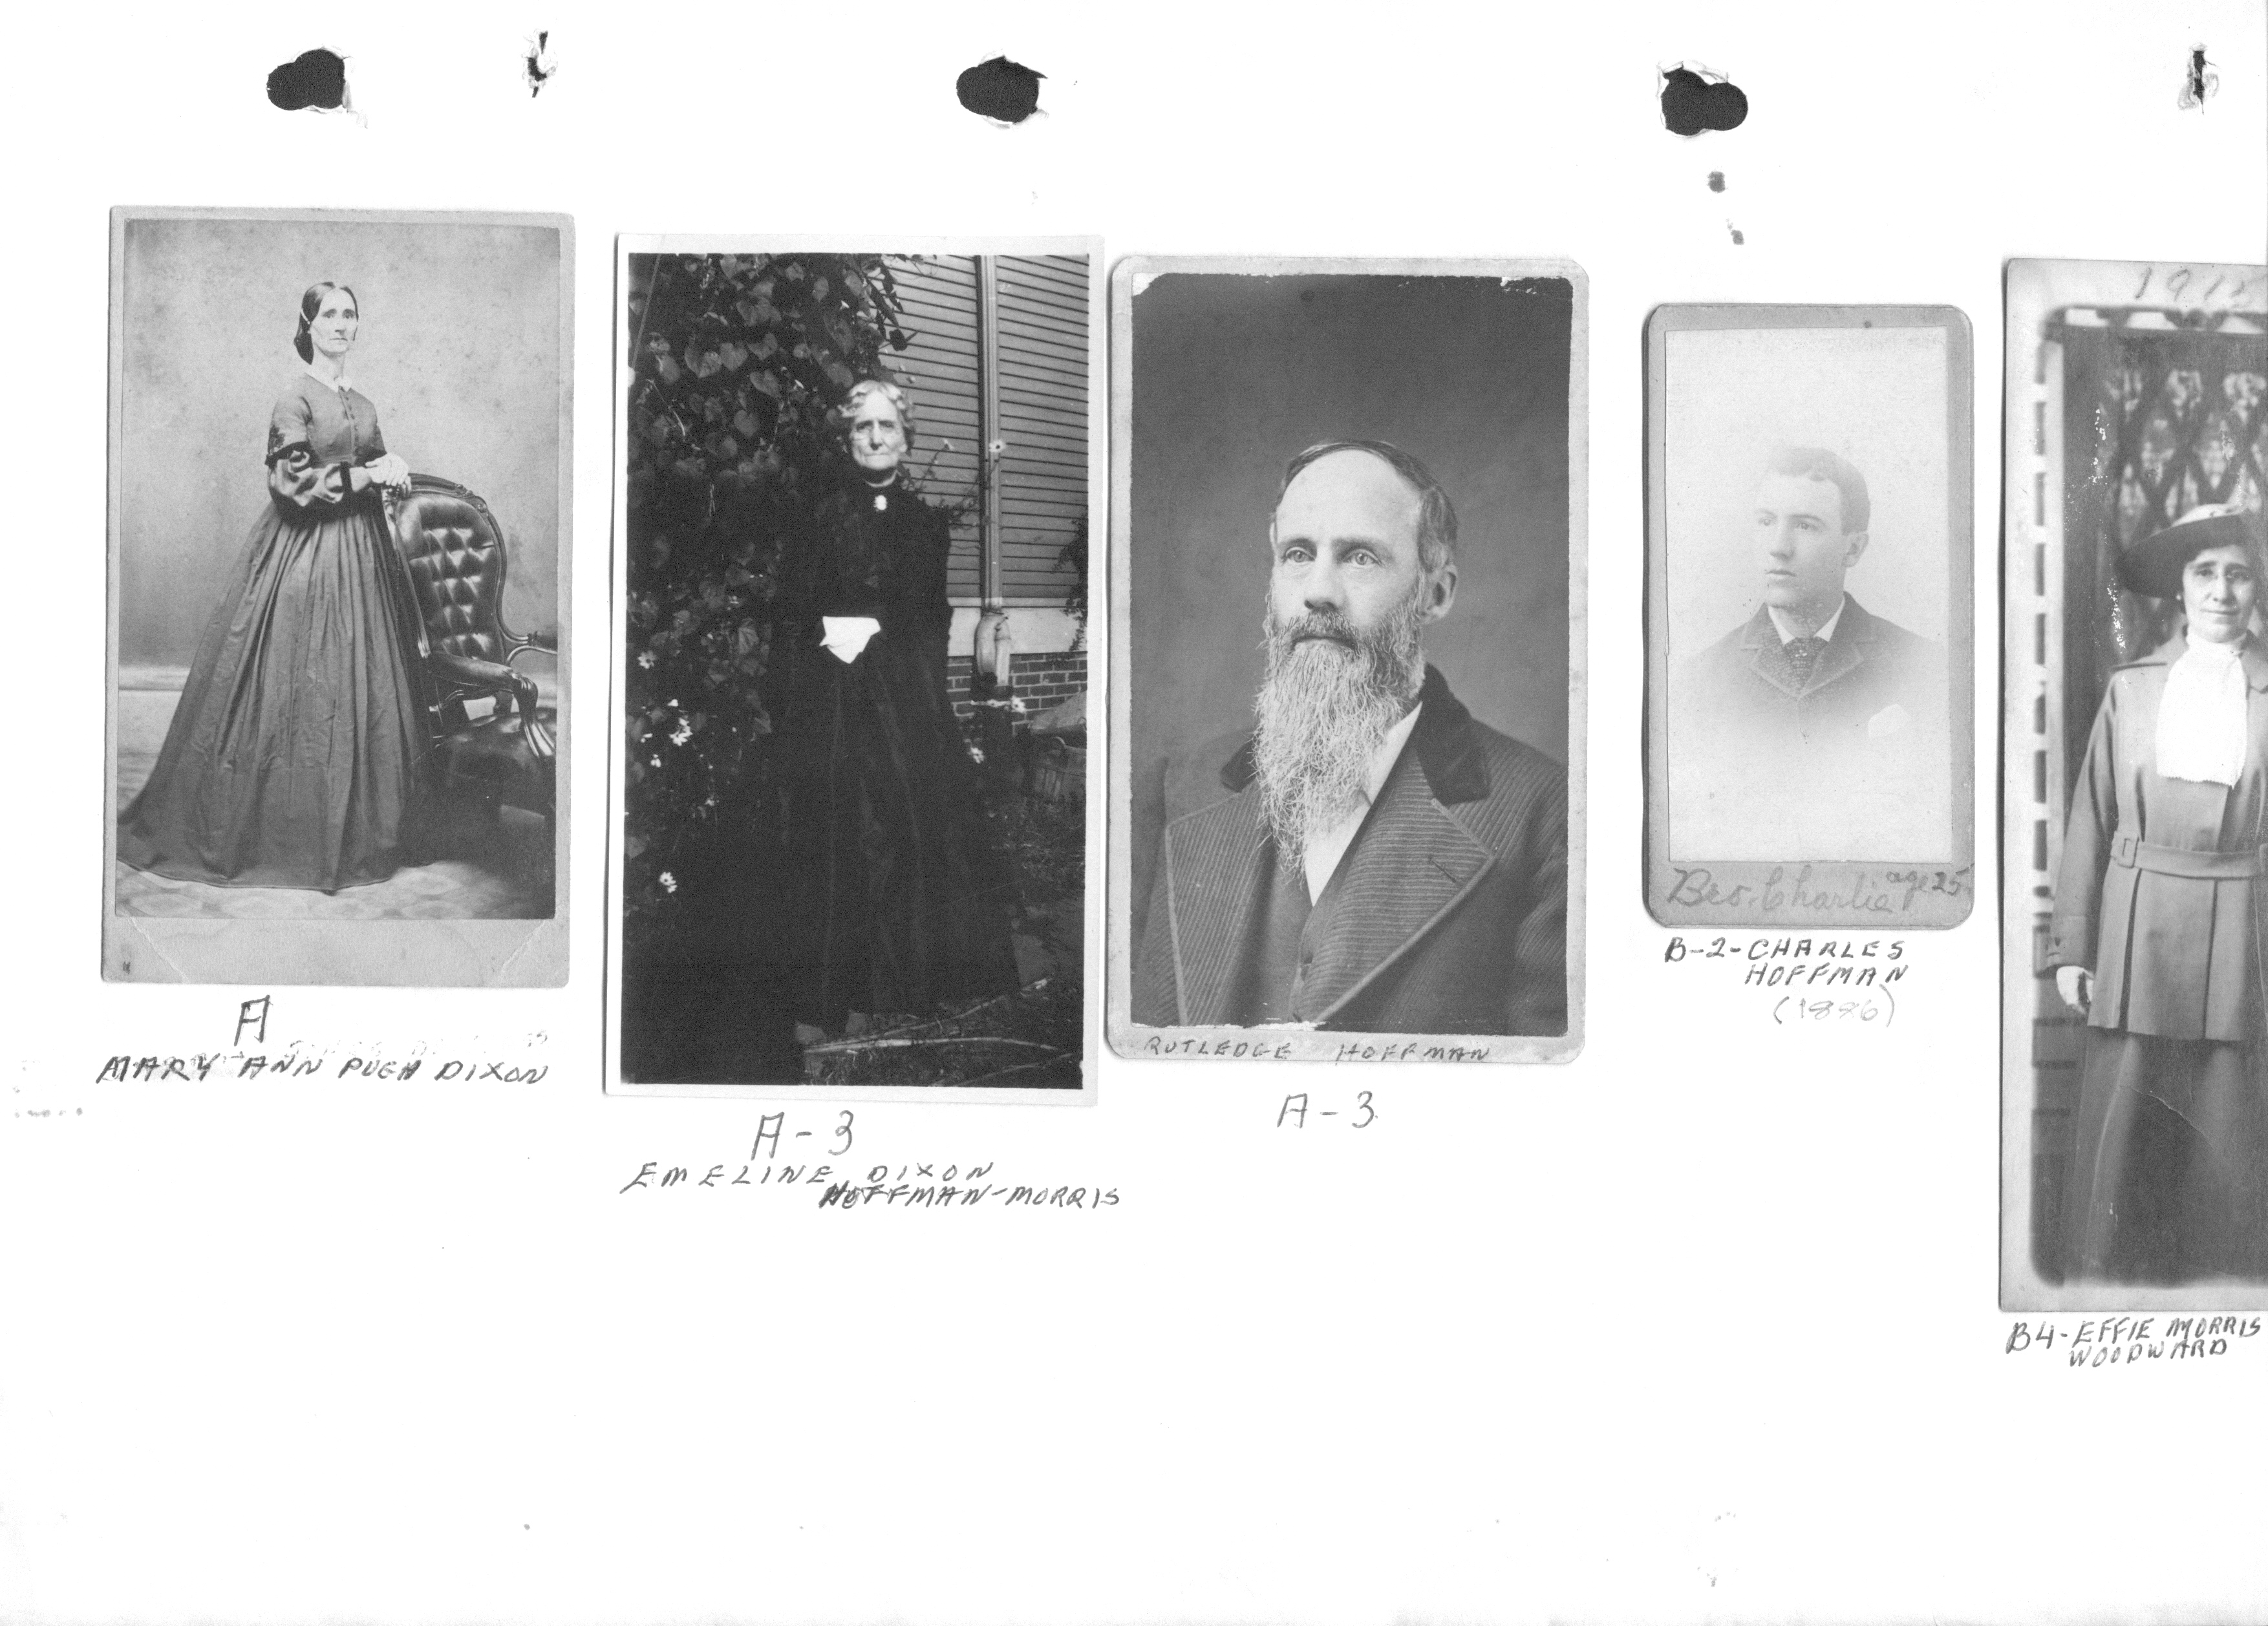 A
MARY ANN PUGH DIXON
A-3
EMELINE DIXON
HOFFMAN-MORRIS
RUTLEDGE HOFFMAN
A-3
Bro. Charlie age 25
B-2-CHARLES
HOFFMAN
(1886)
1912
B4-EFFIE MORRIS
WOODWARD